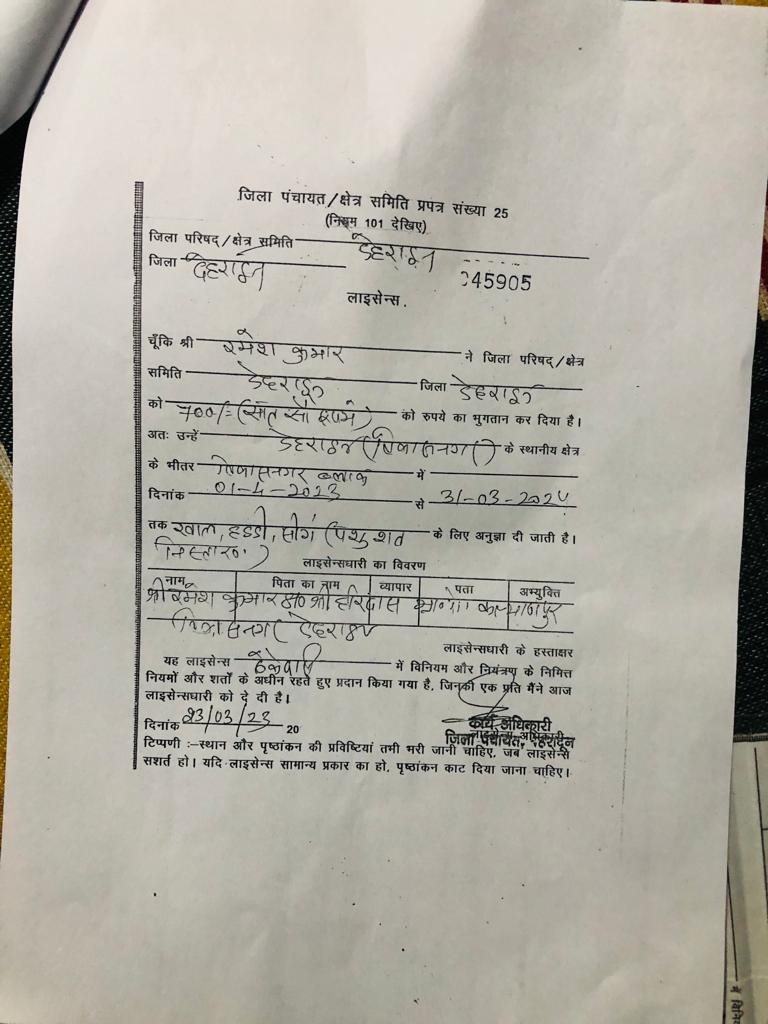 जिला पंचायत/क्षेत्र समिति प्रपत्र संख्या 25
(नियम 101 देखिए)
जिला परिषद्/क्षेत्र समिति देहरादून
जिला देहरादून 045905
लाइसेन्स.
चूँकि श्री रमेश कुमार ने जिला परिषद्/क्षेत्र
समिति देहरादून जिला देहरादून
को 700/= (सात सौ रूपये) को रुपये का भुगतान कर दिया है।
अतः उन्हें देहरादून (विकासनगर) के स्थानीय क्षेत्र
के भीतर विकासनगर ब्लाक में
दिनांक 01-4-2023 से 31-03-2024
तक खाल, हड्डी, सींग (पशु शव के लिए अनुज्ञा दी जाती है।
निस्तारण)
लाइसेन्सधारी का विवरण
नाम पिता का नाम व्यापार पता अभ्युक्ति
श्री रमेश कुमार S/o श्री हरिदास कल्याणपुर
विकासनगर देहरादून
लाइसेन्सधारी के हस्ताक्षर
यह लाइसेन्स में विनियम और नियंत्रण के निमित्त
नियमों और शर्तों के अधीन रहते हुए प्रदान किया गया है, जिनकी एक प्रति मैंने आज
लाइसेन्सधारी को दे दी है।
दिनांक 23/03/23 20
कार्य अधिकारी
जिला पंचायत, देहरादून
टिप्पणी :–स्थान और पृष्ठांकन की प्रविष्टियां तभी भरी जानी चाहिए, जब लाइसेन्स
सशर्त हो। यदि लाइसेन्स सामान्य प्रकार का हो, पृष्ठांकन काट दिया जाना चाहिए।